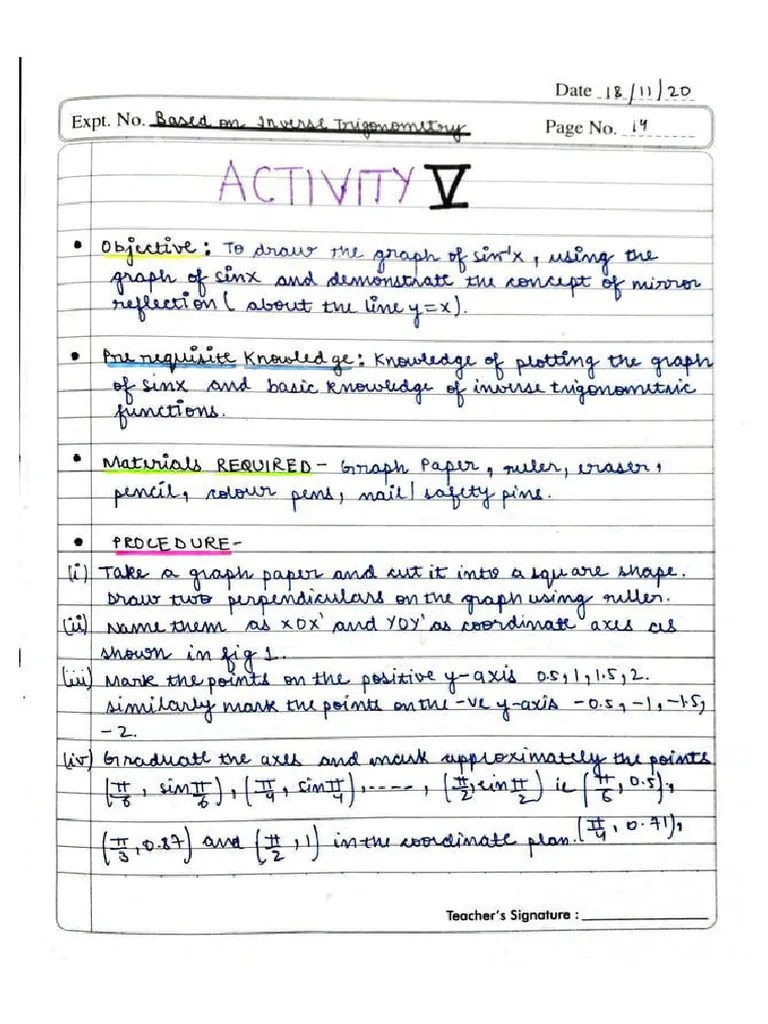 Date 18/11/20
Expt. No. Based on Inverse Trigonometry
Page No. 19
ACTIVITY V
• Objective: To draw the graph of sin⁻¹x, using the
graph of sinx and demonstrate the concept of mirror
reflection (about the line y=x).
• Pre requisite Knowledge: Knowledge of plotting the graph
of sinx and basic knowledge of inverse trigonometric
functions.
• Materials REQUIRED – Graph Paper, ruler, eraser,
pencil, colour pens, nail/safety pins.
• PROCEDURE-
(i) Take a graph paper and cut it into a square shape.
Draw two perpendiculars on the graph using ruller.
(ii) Name them as XOX' and YOY' as coordinate axes as
shown in fig 1.
(iii) Mark the points on the positive y-axis 0.5, 1, 1.5, 2.
similarly mark the points on the -ve y-axis -0.5, -1, -1.5,
-2.
(iv) Graduate the axes and mark approximately the points
(π/6, sin π/6), (π/4, sin π/4), ----, (π/2, sin π/2) ie (π/6, 0.5),
(π/3, 0.87) and (π/2, 1) in the coordinate plan. (π/4, 0.71),
Teacher's Signature :